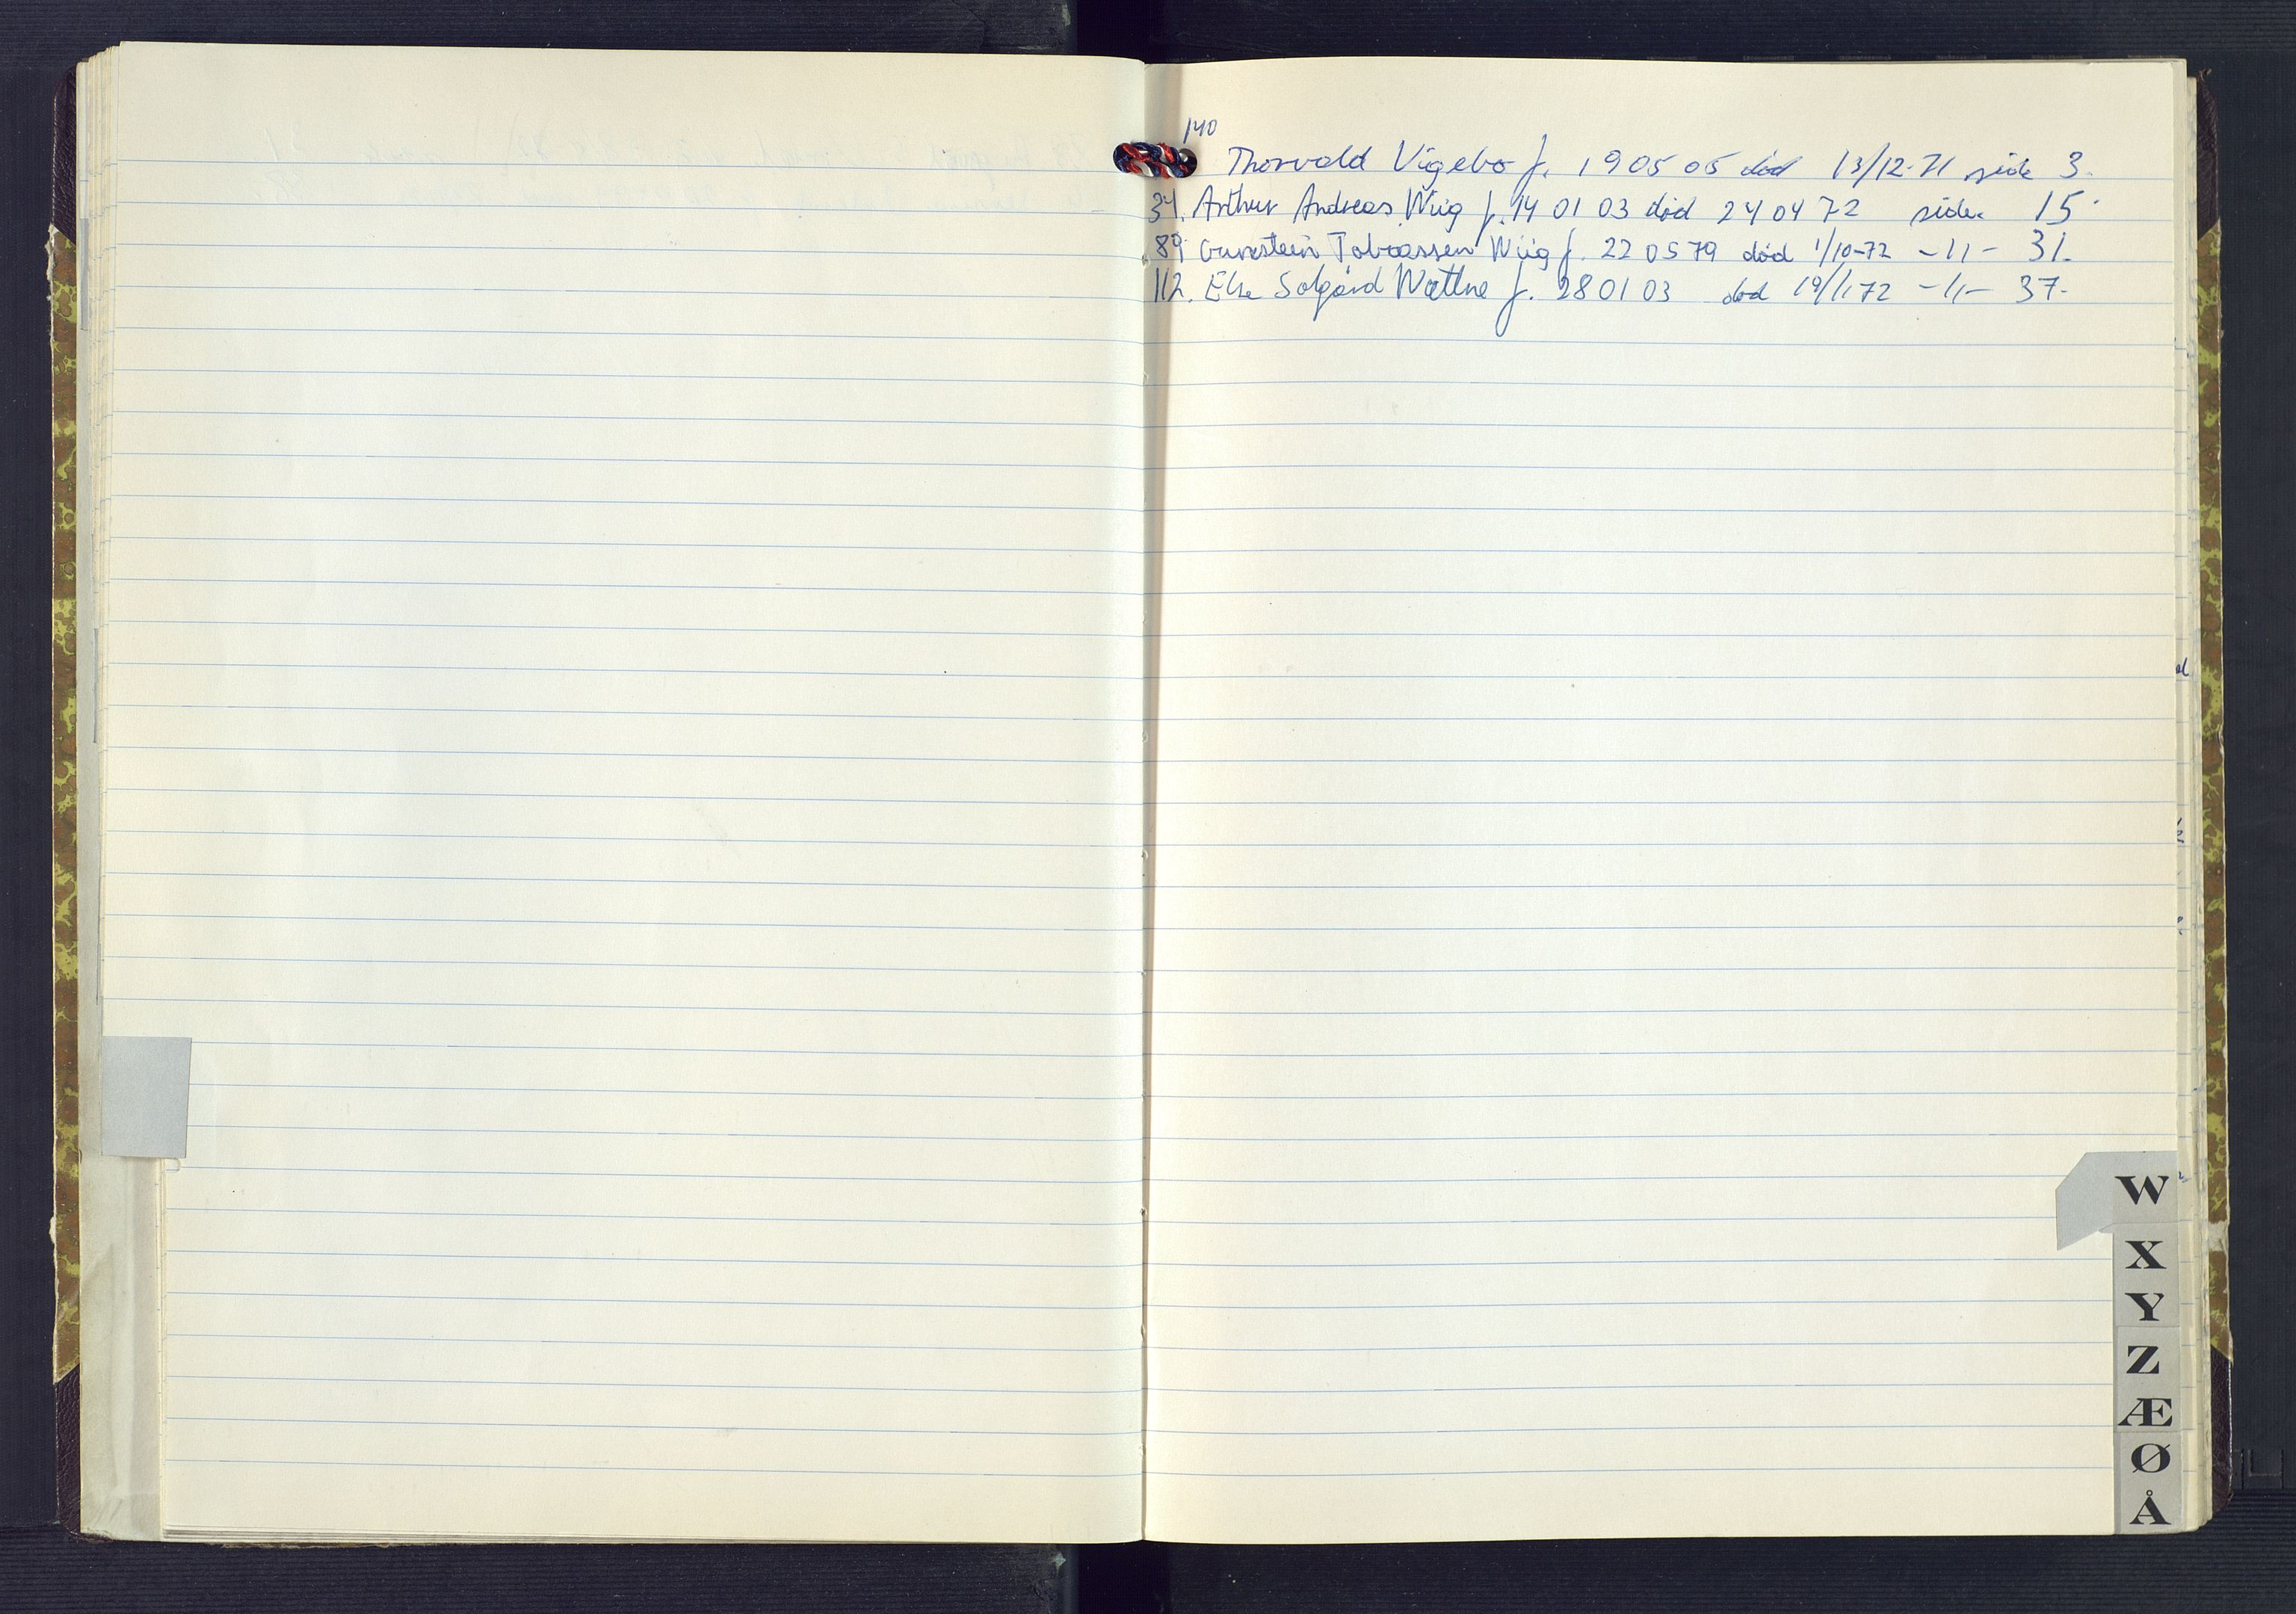 140
Thorvald Vigebo f. 19 05 05 død 13/12-71 side 3.
34. Arthur Andreas Wiig f. 14 01 03 død 24 04 72 side 15.
89. Gunstein Tobiassen Wiig f. 22 05 79 død 1/10-72 -11- 31.
112. Else Solgård Wattne f. 28 01 03 død 19/11 72 -11- 37.
W
X
Y
Z
Æ
Ø
Å